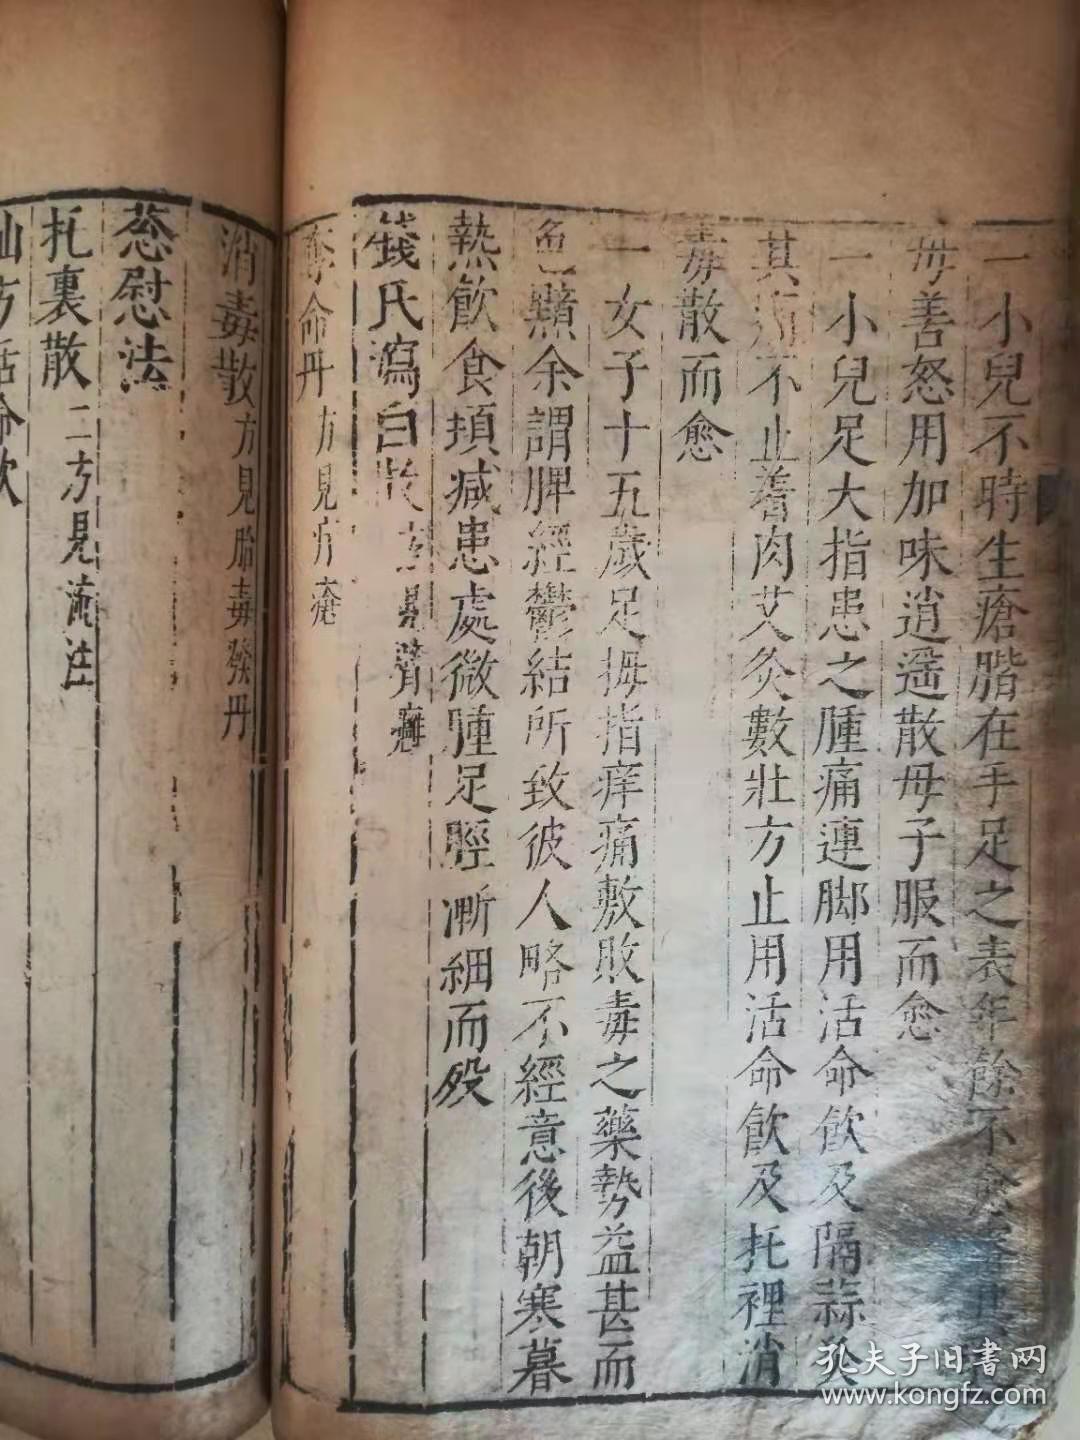 一小兒不時生瘡腊在手足之表年餘不愈
母善怒用加味逍遥散母子服而愈
一小兒足大指患之腫痛連脚用活命飲及隔蒜灸
其痛不止着肉艾灸數壯方止用活命飲及托裡消
毒散而愈
一女子十五歲足拇指痒痛敷敗毒之藥勢益甚而
色黯余謂脾經鬱結所致彼人略不經意後朝寒暮
熱飲食頓减患處微腫足脛漸細而殁
錢氏瀉白散方見臂癰
奪命丹方見疔瘡
消毒散方見胎毒發丹
葱慰法
托裏散二方見流注
仙方活命飲
孔夫子旧書网
www.kongfz.com